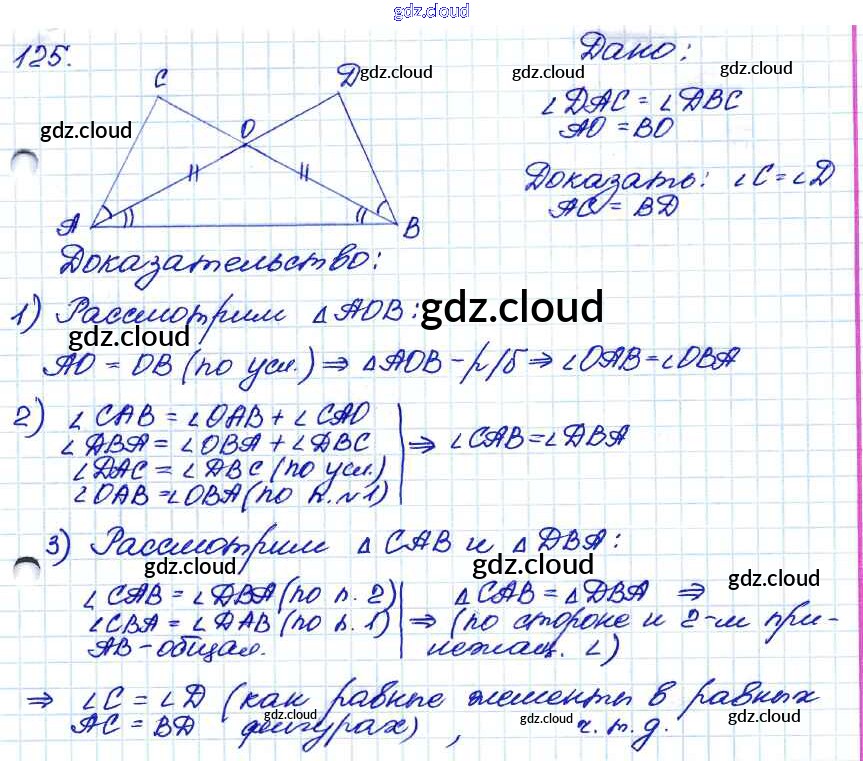 gdz.cloud
125.
C
D
O
A
B
gdz.cloud
gdz.cloud
Дано:
gdz.cloud
∠DAC = ∠DBC
AO = BO
gdz.cloud
Доказать: ∠C = ∠D
AC = BD
gdz.cloud
Доказательство:
1) Рассмотрим △AOB:
gdz.cloud
gdz.cloud
AO = OB (по усл.) ⇒ △AOB – р/б ⇒ ∠OAB = ∠OBA
2) ∠CAB = ∠OAB + ∠CAO
∠DBA = ∠OBA + ∠DBC
∠DAC = ∠DBC (по усл.)
∠OAB = ∠OBA (по п. №1)
⇒ ∠CAB = ∠DBA
3) Рассмотрим △CAB и △DBA:
gdz.cloud
gdz.cloud
gdz.cloud
∠CAB = ∠DBA (по п. 2)
∠CBA = ∠DAB (по п. 1)
AB – общая.
△CAB = △DBA ⇒
⇒ (по стороне и 2-м при-
лежащ. ∠)
⇒ ∠C = ∠D (как равные элементы в равных
AC = BD фигурах), ч.т.д.
gdz.cloud
gdz.cloud
gdz.cloud